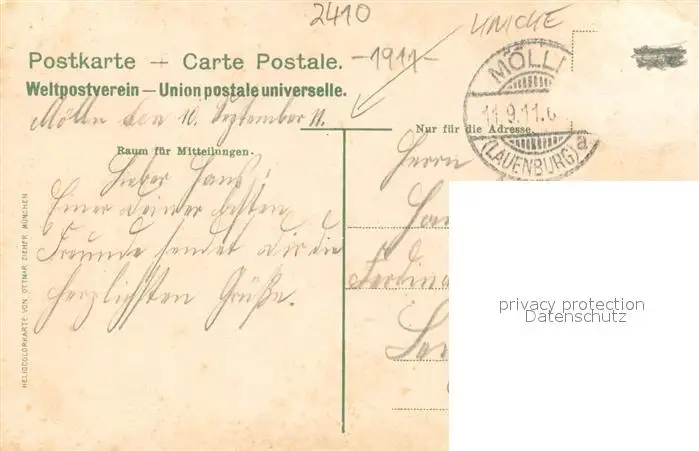 2410
UNICHE
Postkarte — Carte Postale.
-1911-
Weltpostverein — Union postale universelle.
MÖLL
11.9.11.6
(LAUENBURG) a
Mölln den 10. September 11.
Nur für die Adresse.
Raum für Mitteilungen.
Herrn
Lieber Hans!
Einer deiner besten
Freunde sendet dir die
herzlichsten Grüße.
Ferdina
HELIOCOLORKARTE VON OTTMAR ZIEHER, MÜNCHEN
privacy protection
Datenschutz